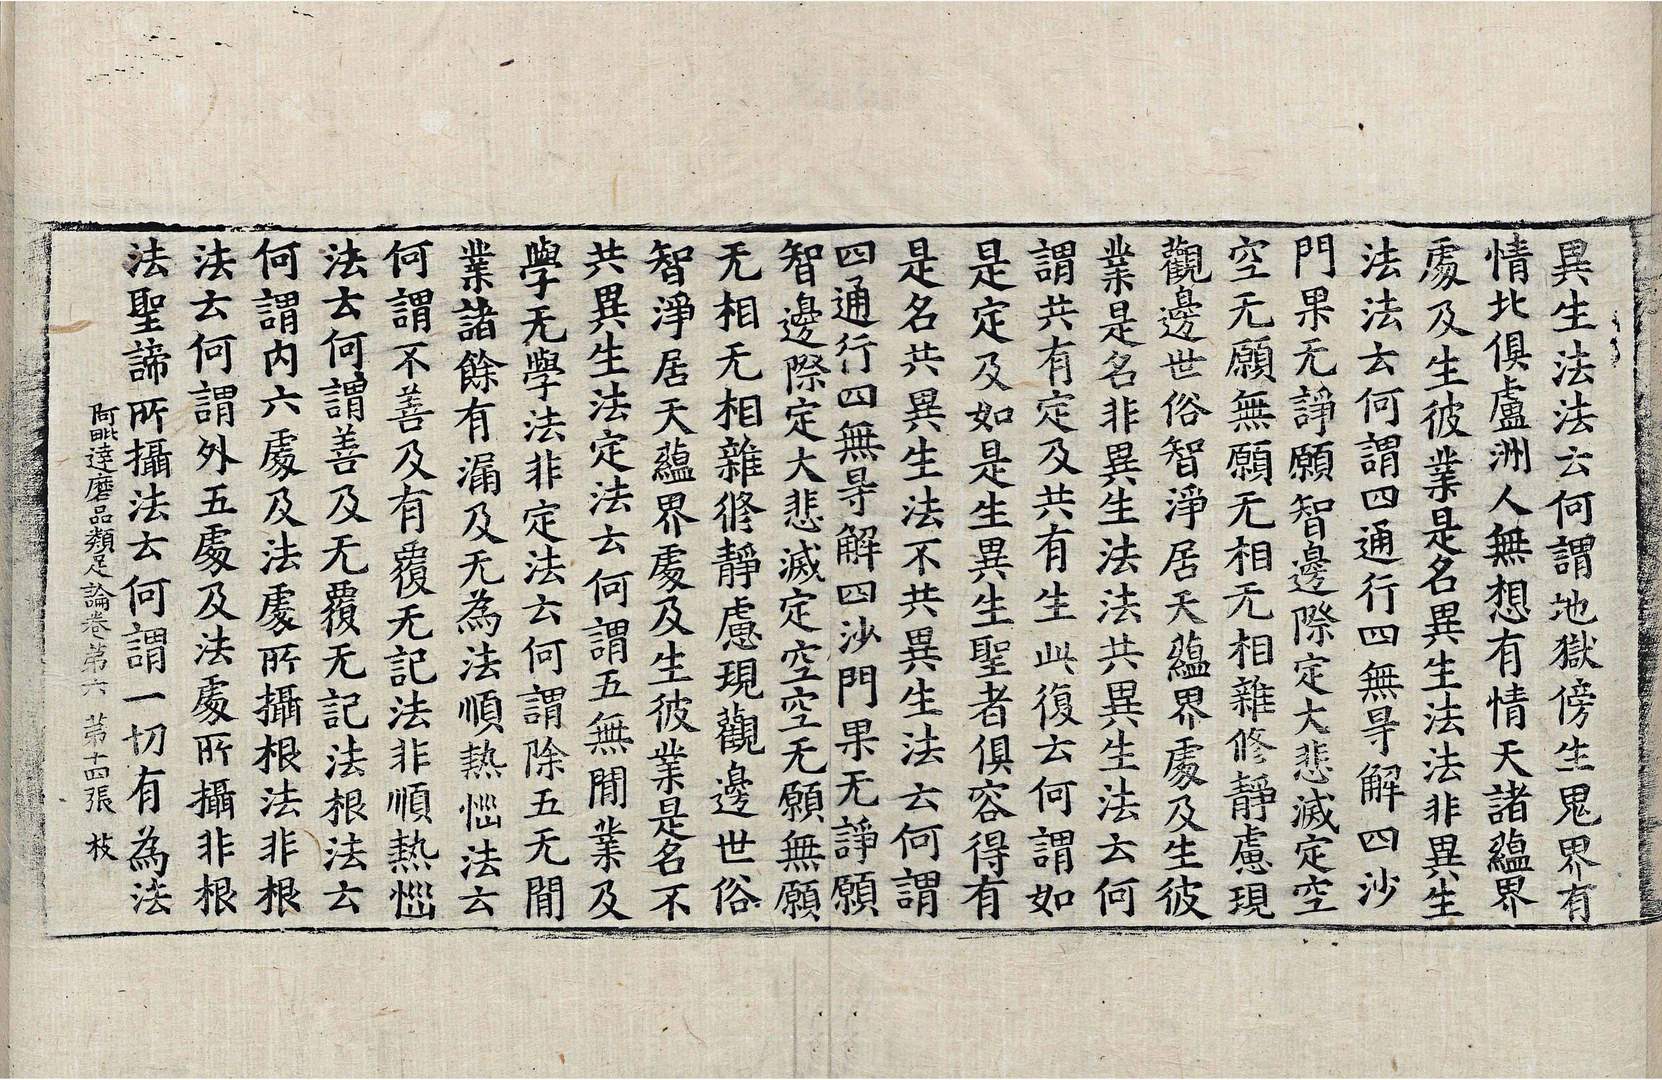 異生法法云何謂地獄傍生鬼界有
情北俱盧洲人無想有情天諸蘊界
處及生彼業是名異生法法非異生
法法云何謂四通行四無㝵解四沙
門果无諍願智邊際定大悲滅定空
空无願無願无相无相雜修靜慮現
觀邊世俗智淨居天蘊界處及生彼
業是名非異生法法共異生法云何
謂共有定及共有生此復云何謂如
是定及如是生異生聖者俱容得有
是名共異生法不共異生法云何謂
四通行四無㝵解四沙門果无諍願
智邊際定大悲滅定空空无願無願
无相无相雜修靜慮現觀邊世俗
智淨居天蘊界處及生彼業是名不
共異生法定法云何謂五無間業及
學无學法非定法云何謂除五无間
業諸餘有漏及无為法順熱惱法云
何謂不善及有覆无記法非順熱惱
法云何謂善及无覆无記法根法云
何謂內六處及法處所攝根法非根
法云何謂外五處及法處所攝非根
法聖諦所攝法云何謂一切有為法
阿毗達磨品類足論卷第六 第十四張 枝